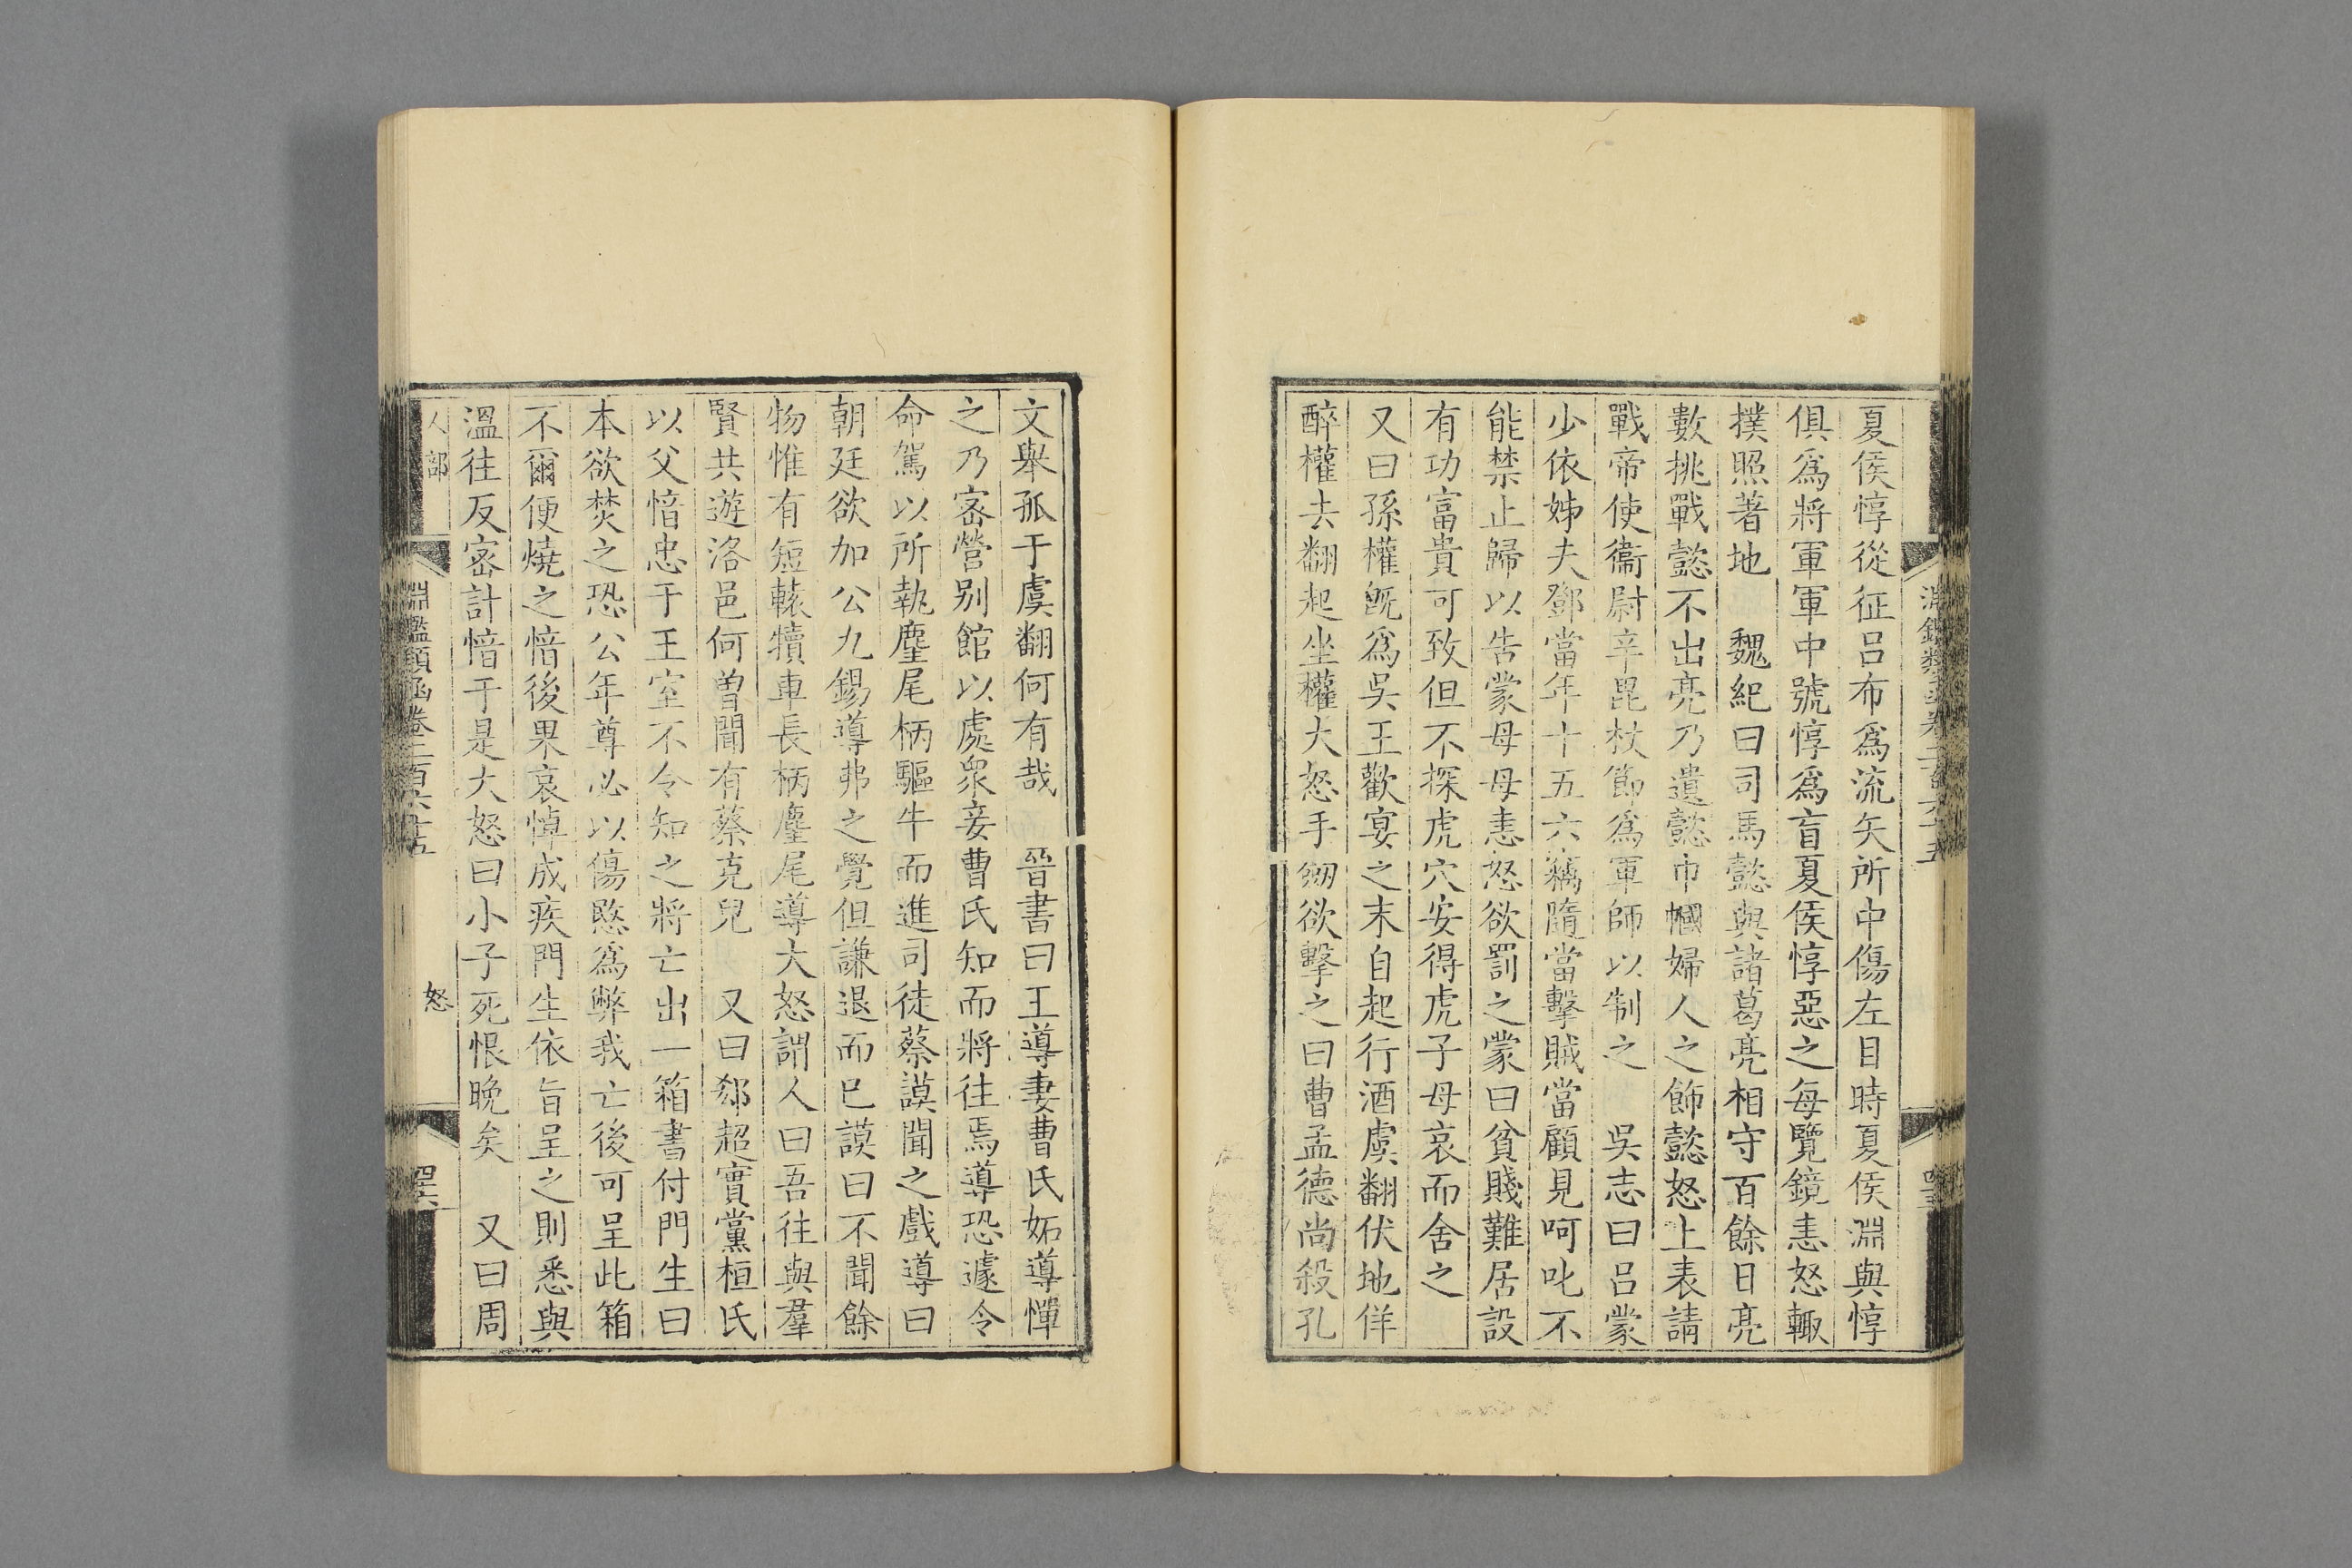 夏侯惇從征吕布爲流矢所中傷左目時夏侯淵與惇
俱爲將軍軍中號惇爲盲夏侯惇惡之每覽鏡恚怒輙
撲照著地　魏紀曰司馬懿與諸葛亮相守百餘日亮
數挑戰懿不出亮乃遺懿巾幗婦人之飾懿怒上表請
戰帝使衞尉辛毘杖節爲軍師以制之　吳志曰吕蒙
少依姊夫鄧當年十五六竊隨當擊賊當顧見呵叱不
能禁止歸以告蒙母母恚怒欲罰之蒙曰貧賤難居設
有功富貴可致但不探虎穴安得虎子母哀而舍之
又曰孫權旣爲吳王歡宴之末自起行酒虞翻伏地佯
醉權去翻起坐權大怒手劒欲擊之曰曹孟德尚殺孔
文舉孤于虞翻何有哉　晉書曰王導妻曹氏妬導憚
之乃密營别館以處衆妾曹氏知而將往焉導恐遽令
命駕以所執麈尾柄驅牛而進司徒蔡謨聞之戲導曰
朝廷欲加公九錫導弗之覺但謙退而已謨曰不聞餘
物惟有短轅犢車長柄麈尾導大怒謂人曰吾往與羣
賢共遊洛邑何曽聞有蔡克兒　又曰郄超實黨桓氏
以父愔忠于王室不令知之將亡出一箱書付門生曰
本欲焚之恐公年尊必以傷愍爲弊我亡後可呈此箱
不爾便燒之愔後果哀悼成疾門生依旨呈之則悉與
溫往反密計愔于是大怒曰小子死恨晚矣　又曰周
人部
淵鑑類函卷二百六十五
怒